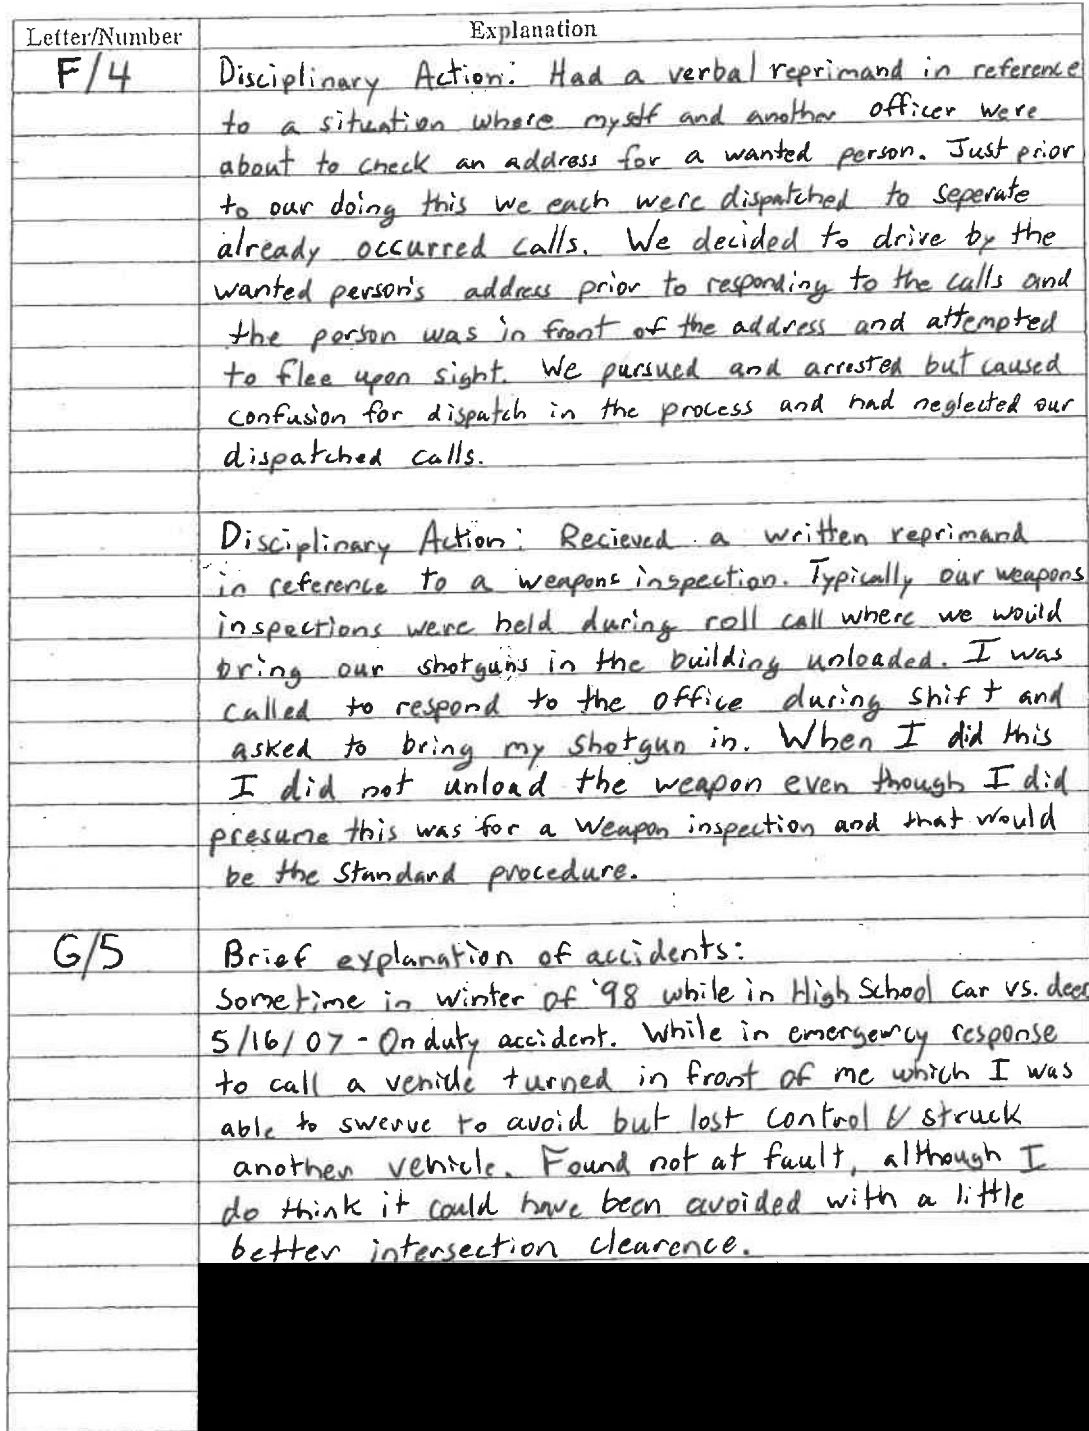 Letter/Number Explanation
F/4 Disciplinary Action: Had a verbal reprimand in reference
to a situation where myself and another officer were
about to check an address for a wanted person. Just prior
to our doing this we each were dispatched to seperate
already occurred calls. We decided to drive by the
wanted person's address prior to responding to the calls and
the person was in front of the address and attempted
to flee upon sight. We pursued and arrested but caused
confusion for dispatch in the process and had neglected our
dispatched calls.
Disciplinary Action: Recieved a written reprimand
in reference to a weapons inspection. Typically our weapons
inspections were held during roll call where we would
bring our shotguns in the building unloaded. I was
called to respond to the office during shift and
asked to bring my shotgun in. When I did this
I did not unload the weapon even though I did
presume this was for a weapon inspection and that would
be the standard procedure.
G/5 Brief explanation of accidents:
Sometime in winter of '98 while in High School car vs. deer
5/16/07 - On duty accident. While in emergency response
to call a vehicle turned in front of me which I was
able to swerve to avoid but lost control & struck
another vehicle. Found not at fault, although I
do think it could have been avoided with a little
better intersection clearence.